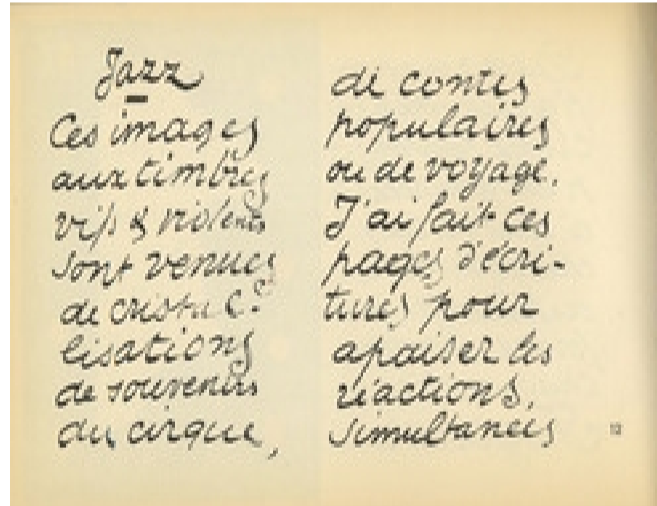 Jazz
Ces images
aux timbres
vifs & violents
sont venues
de cristal-
lisations
de souvenirs
du cirque,
de contes
populaires
ou de voyage.
J'ai fait ces
pages d'écri-
tures pour
apaiser les
réactions,
simultanées